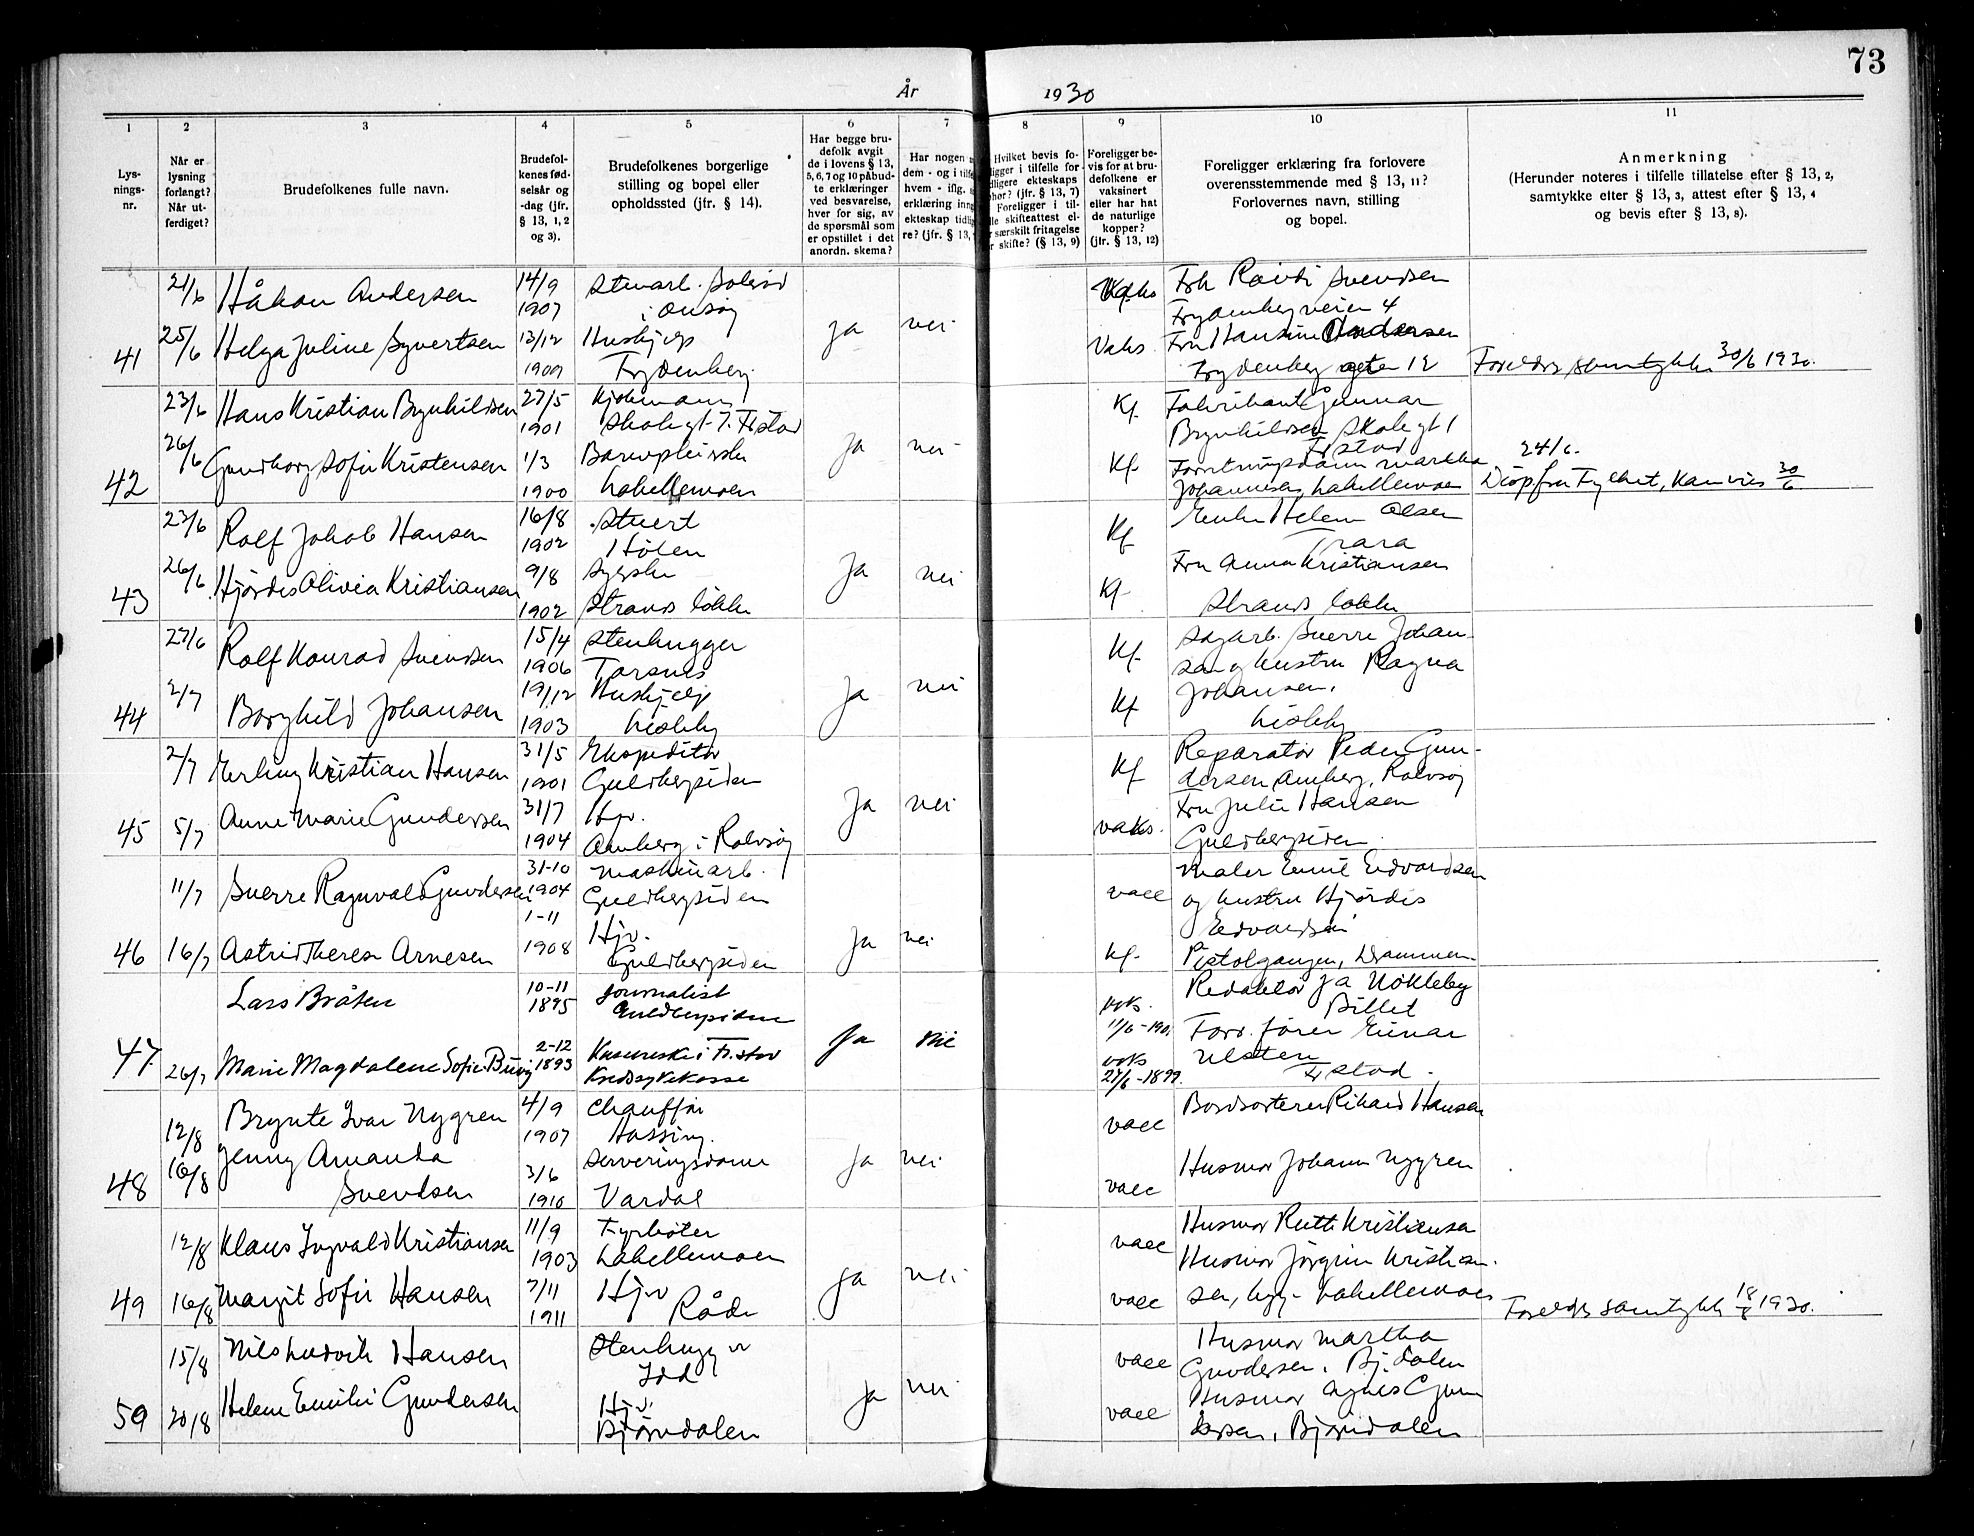 73
År 1930
1
2
3
4
5
6
7
8
9
10
11
Lys-
nings-
nr.
Når er
lysning
forlangt?
Når ut-
ferdiget?
Brudefolkenes fulle navn.
Brudefol-
kenes fød-
selsår og
-dag (jfr.
§ 13, 1, 2
og 3).
Brudefolkenes borgerlige
stilling og bopel eller
opholdssted (jfr. § 14).
Har begge bru-
defolk avgit
de i lovens § 13,
5, 6, 7 og 10 påbud-
te erklæringer
ved besvarelse,
hver for sig, av
de spørsmål som
er opstillet i det
anordn. skema?
Har nogen
dem - og i
hvem - iflg.
erklæring
ekteskap
re? (jfr. § 13,
Hvilket bevis fo-
ligger i tilfelle for
ekteskaps
(jfr. § 13, 7)
Foreligger i til-
skifteattest el-
særskilt fritagelse
skifte? (§ 13, 9)
Foreligger be-
vis for at bru-
defolkene er
vaksinert
eller har hat
de naturlige
kopper?
(jfr. § 13, 12)
Foreligger erklæring fra forlovere
overensstemmende med § 13, 11?
Forlovernes navn, stilling
og bopel.
Anmerkning
(Herunder noteres i tilfelle tillatelse efter § 13, 2,
samtykke efter § 13, 3, attest efter § 13, 4
og bevis efter § 13, 8).
41
21/6 Håkon Andersen 14/9 1907 Stenarb.
i Onsøy
25/6 Helga Juline Syvertsen 13/12 1909 Hushjelp
Frydenberg
Ja nei
Vaks
Svendsen
Frydenbergveien 4
Vaks. Fru
Frydenberg gaten 12
Foreldrs samtykke 30/6 1930.
42
23/6 Hans Kristian Brynhildsen 27/5 1901 Kjøbmann
Skolegt. 7. Frstad
26/6 Gundborg Sofie Kristensen 1/3 1900
Labellemoen
Ja nei
Kf Fabrikant Gunnar
Brynhildsen Skolegt 1
Frstad
Kf Martha
Labellemoen
24/6.
Disp fra Fylket, Kan vies 30/6
43
23/6 Rolf Jakob Hansen 16/8 1902 Stuert
Hölen
26/6 Hjördis Olivia Kristiansen 9/8 1902 Syerske
Strands løkke
Ja nei
Kf Enke Helene Olsen
Trara
Kf Fru Anna Kristiansen
Strands løkke
44
27/6 Rolf Konrad Svendsen 15/4 1906 Stenhugger
Torsnes
2/7 Borghild Johansen 19/12 1903 Hushjelp
Lisleby
Ja nei
Kf Sagarb. Sverre Johan-
sen og hustru Ragna
Kf Johansen,
Lisleby
45
2/7 Erling Kristian Hansen 31/5 1901 Ekspeditør
Guldbergsiden
5/7 Anne Marie Gundersen 31/7 1904 Hjv.
Amberg i Rolvsøy
Ja nei
Kf Reparatør Peder Gun-
dersen Amberg, Rolvsøy
vaks. Fru Julie Hansen
Guldbergsiden
46
11/7 Sverre Ragnvald Gundersen 31-10 1904 Maskinarb.
Guldbergsiden
16/7 Astrid Therese Arnesen 1-11 1908 Hjv.
Guldbergsiden
Ja nei
vacc Maler Emil Edvardsen
og hustru Hjördis
Edvardsen
Kf. Pistolgangen, Drammen
47.
Lars Bråten 10-11 1895 Journalist
Guldbergsiden
26/7 Marie Magdalene Sofie 2-12 1893 i Fr.stad
Kredssykekasse
Ja nei
vaks. Redaktör J A Nökleby
Billet
Forr. fører Einar
vaks Ulsten
27/6-1899. Frstad.
48
12/8 Brynte Ivar Nygren 4/9 1907 Chauffør
Hassing.
16/8 Jenny Amanda
Svendsen 3/6 1910 Serveringsdame
Vardal
Ja nei
vacc Bordsorterer Rikard Hansen
vacc Husmor Johanne Nygren
49
12/8 Klaus Ingvald Kristiansen 11/9 1903 Fyrbøter
Labellemoen
16/8 Margit Sofie Hansen 7/11 1911 Hjv
Råde
Ja nei
vacc Husmor Ruth Kristiansen
Husmor Jørgine Kristian-
vacc sen, begge Labellemoen
Foreldrs samtykke 18/8 1930.
50
15/8 Nils Ludvik Hansen Stenhugger
Idd
20/8 Helene Emilie Gundersen Hjv.
Bjørndalen
Ja nei
vacc Husmor Martha
Gundersen, Bj.dalen
vacc Husmor Agnes Gun
dersen, Bjørndalen